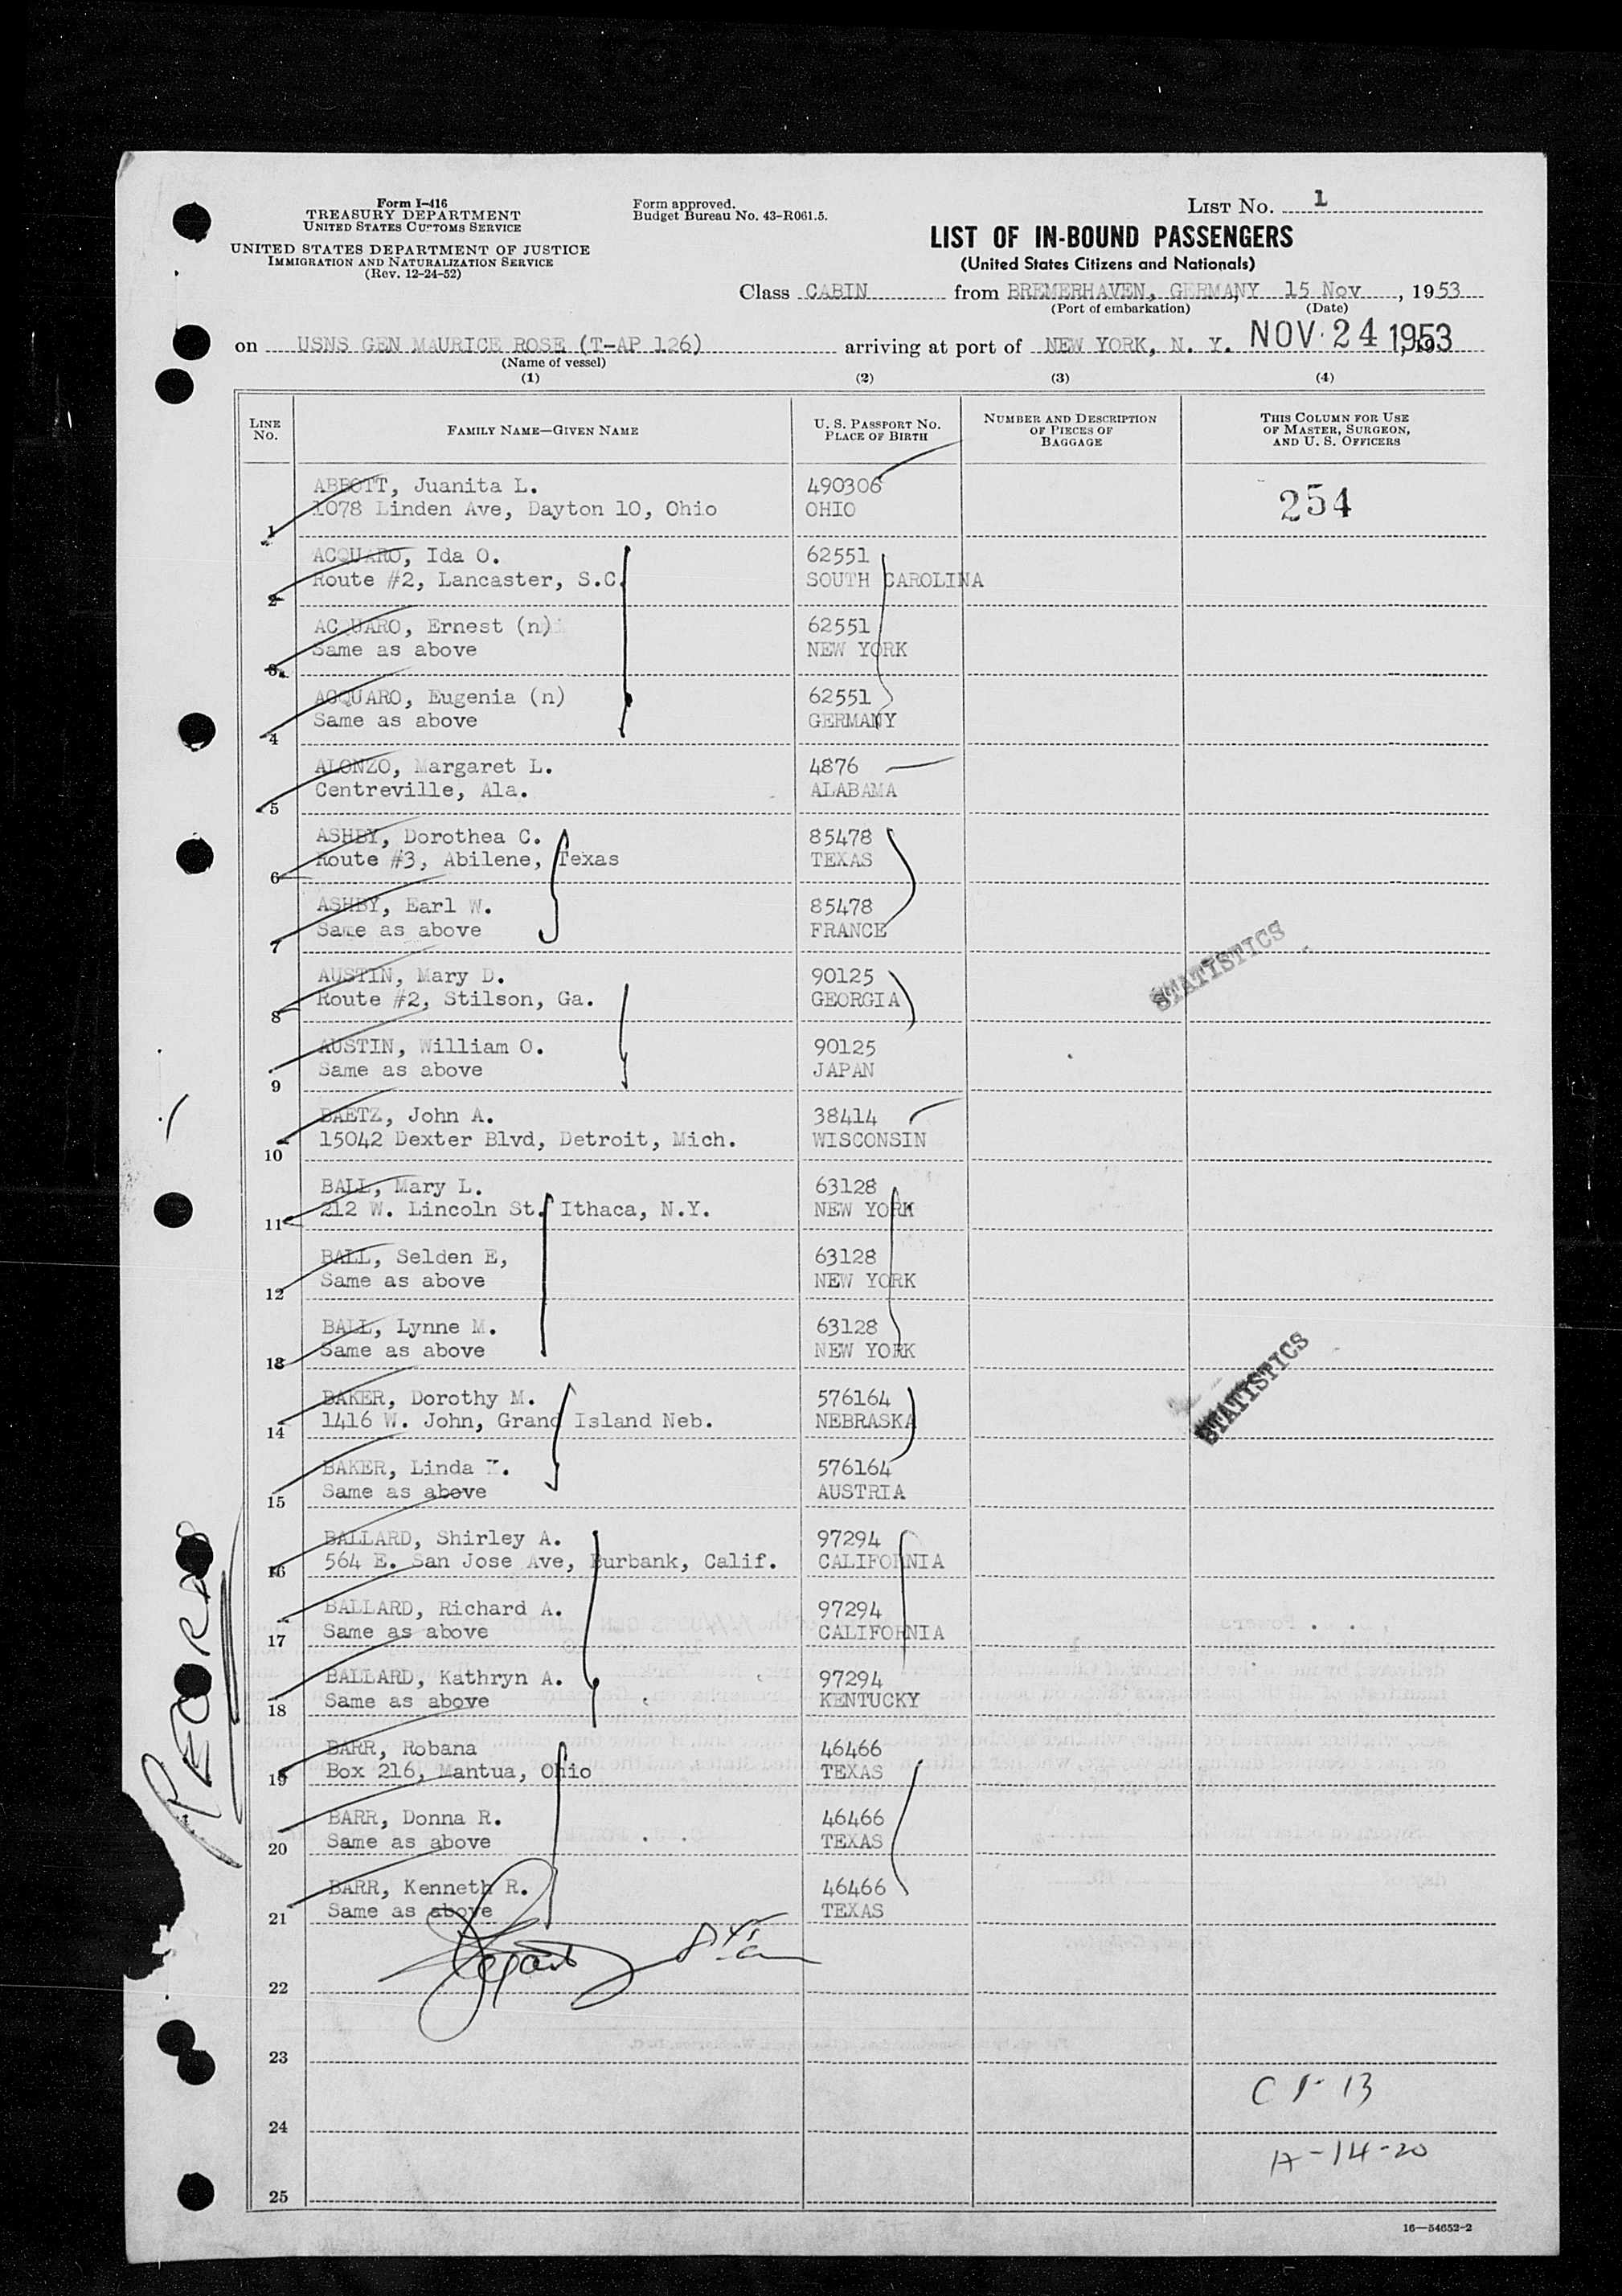 Form I-416
TREASURY DEPARTMENT
UNITED STATES CUSTOMS SERVICE
UNITED STATES DEPARTMENT OF JUSTICE
IMMIGRATION AND NATURALIZATION SERVICE
(Rev. 12-24-52)
Form approved.
Budget Bureau No. 43-R061.5.
LIST NO. 1
LIST OF IN-BOUND PASSENGERS
(United States Citizens and Nationals)
Class CABIN from BREMERHAVEN, GERMANY 15 Nov, 1953
(Port of embarkation) (Date)
on USNS GEN MAURICE ROSE (T-AP 126) arriving at port of NEW YORK, N. Y. NOV 24 1953
(Name of vessel)
(1) (2) (3) (4)
LINE NO.
FAMILY NAME—GIVEN NAME
U. S. PASSPORT NO.
PLACE OF BIRTH
NUMBER AND DESCRIPTION
OF PIECES OF
BAGGAGE
THIS COLUMN FOR USE
OF MASTER, SURGEON,
AND U. S. OFFICERS
ABBOTT, Juanita L. 490306
1078 Linden Ave, Dayton 10, Ohio OHIO 254
1
ACQUARO, Ida O. 62551
Route #2, Lancaster, S.C. SOUTH CAROLINA
2
ACQUARO, Ernest (n) 62551
Same as above NEW YORK
3
ACQUARO, Eugenia (n) 62551
Same as above GERMANY
4
ALONZO, Margaret L. 4876
Centreville, Ala. ALABAMA
5
ASHBY, Dorothea C. 85478
Route #3, Abilene, Texas TEXAS
6
ASHBY, Earl W. 85478
Same as above FRANCE
7
STATISTICS
AUSTIN, Mary D. 90125
Route #2, Stilson, Ga. GEORGIA
8
AUSTIN, William O. 90125
Same as above JAPAN
9
BAETZ, John A. 38414
15042 Dexter Blvd, Detroit, Mich. WISCONSIN
10
BALL, Mary L. 63128
212 W. Lincoln St. Ithaca, N.Y. NEW YORK
11
BALL, Selden E, 63128
Same as above NEW YORK
12
BALL, Lynne M. 63128
Same as above NEW YORK
13
STATISTICS
BAKER, Dorothy M. 576164
1416 W. John, Grand Island Neb. NEBRASKA
14
BAKER, Linda 576164
Same as above AUSTRIA
15
BALLARD, Shirley A. 97294
564 E. San Jose Ave, Burbank, Calif. CALIFORNIA
16
BALLARD, Richard A. 97294
Same as above CALIFORNIA
17
BALLARD, Kathryn A. 97294
Same as above KENTUCKY
18
BARR, Robana 46466
Box 216, Mantua, Ohio TEXAS
19
BARR, Donna R. 46466
Same as above TEXAS
20
BARR, Kenneth R. 46466
Same as above TEXAS
21
22
23
24
25
RECORDS
A-14-20
16—54652-2